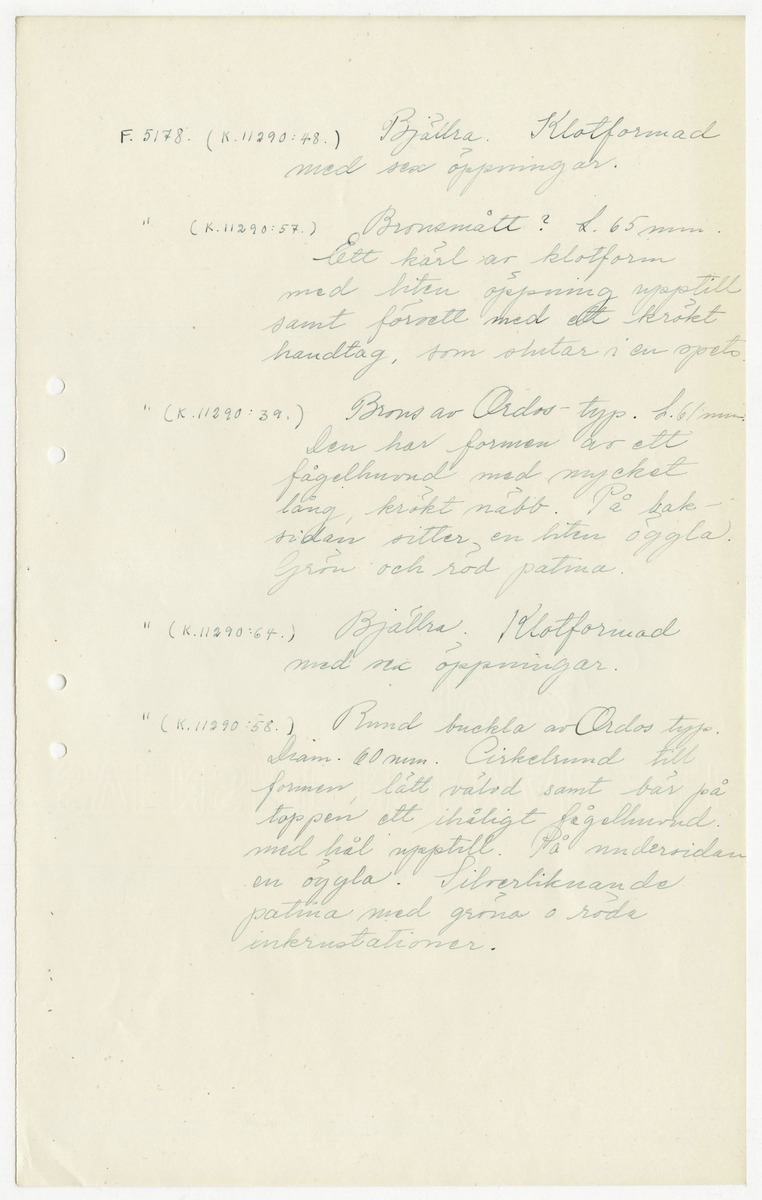 F. 5178. (K. 11290:48.) Bjällra. Klotformad
med sex öppningar.
" (K. 11290:57.) Bronsmått? L. 65 mm.
Ett kärl av klotform
med liten öppning upptill
samt försett med ett krökt
handtag, som slutar i en spets.
" (K. 11290:39.) Brons av Ordos-typ. L. 61 mm.
Den har formen av ett
fågelhuvud med mycket
lång, krökt näbb. På bak-
sidan sitter en liten öggla.
Grön och röd patina.
" (K. 11290:64.) Bjällra. Klotformad
med sex öppningar.
" (K. 11290:58.) Rund buckla av Ordos typ.
Diam. 60 mm. Cirkelrund till
formen, lätt välvd samt bär på
toppen ett ihåligt fågelhuvud.
med hål upptill. På undersidan
en öggla. Silverliknande
patina med gröna o röda
inkrustationer.